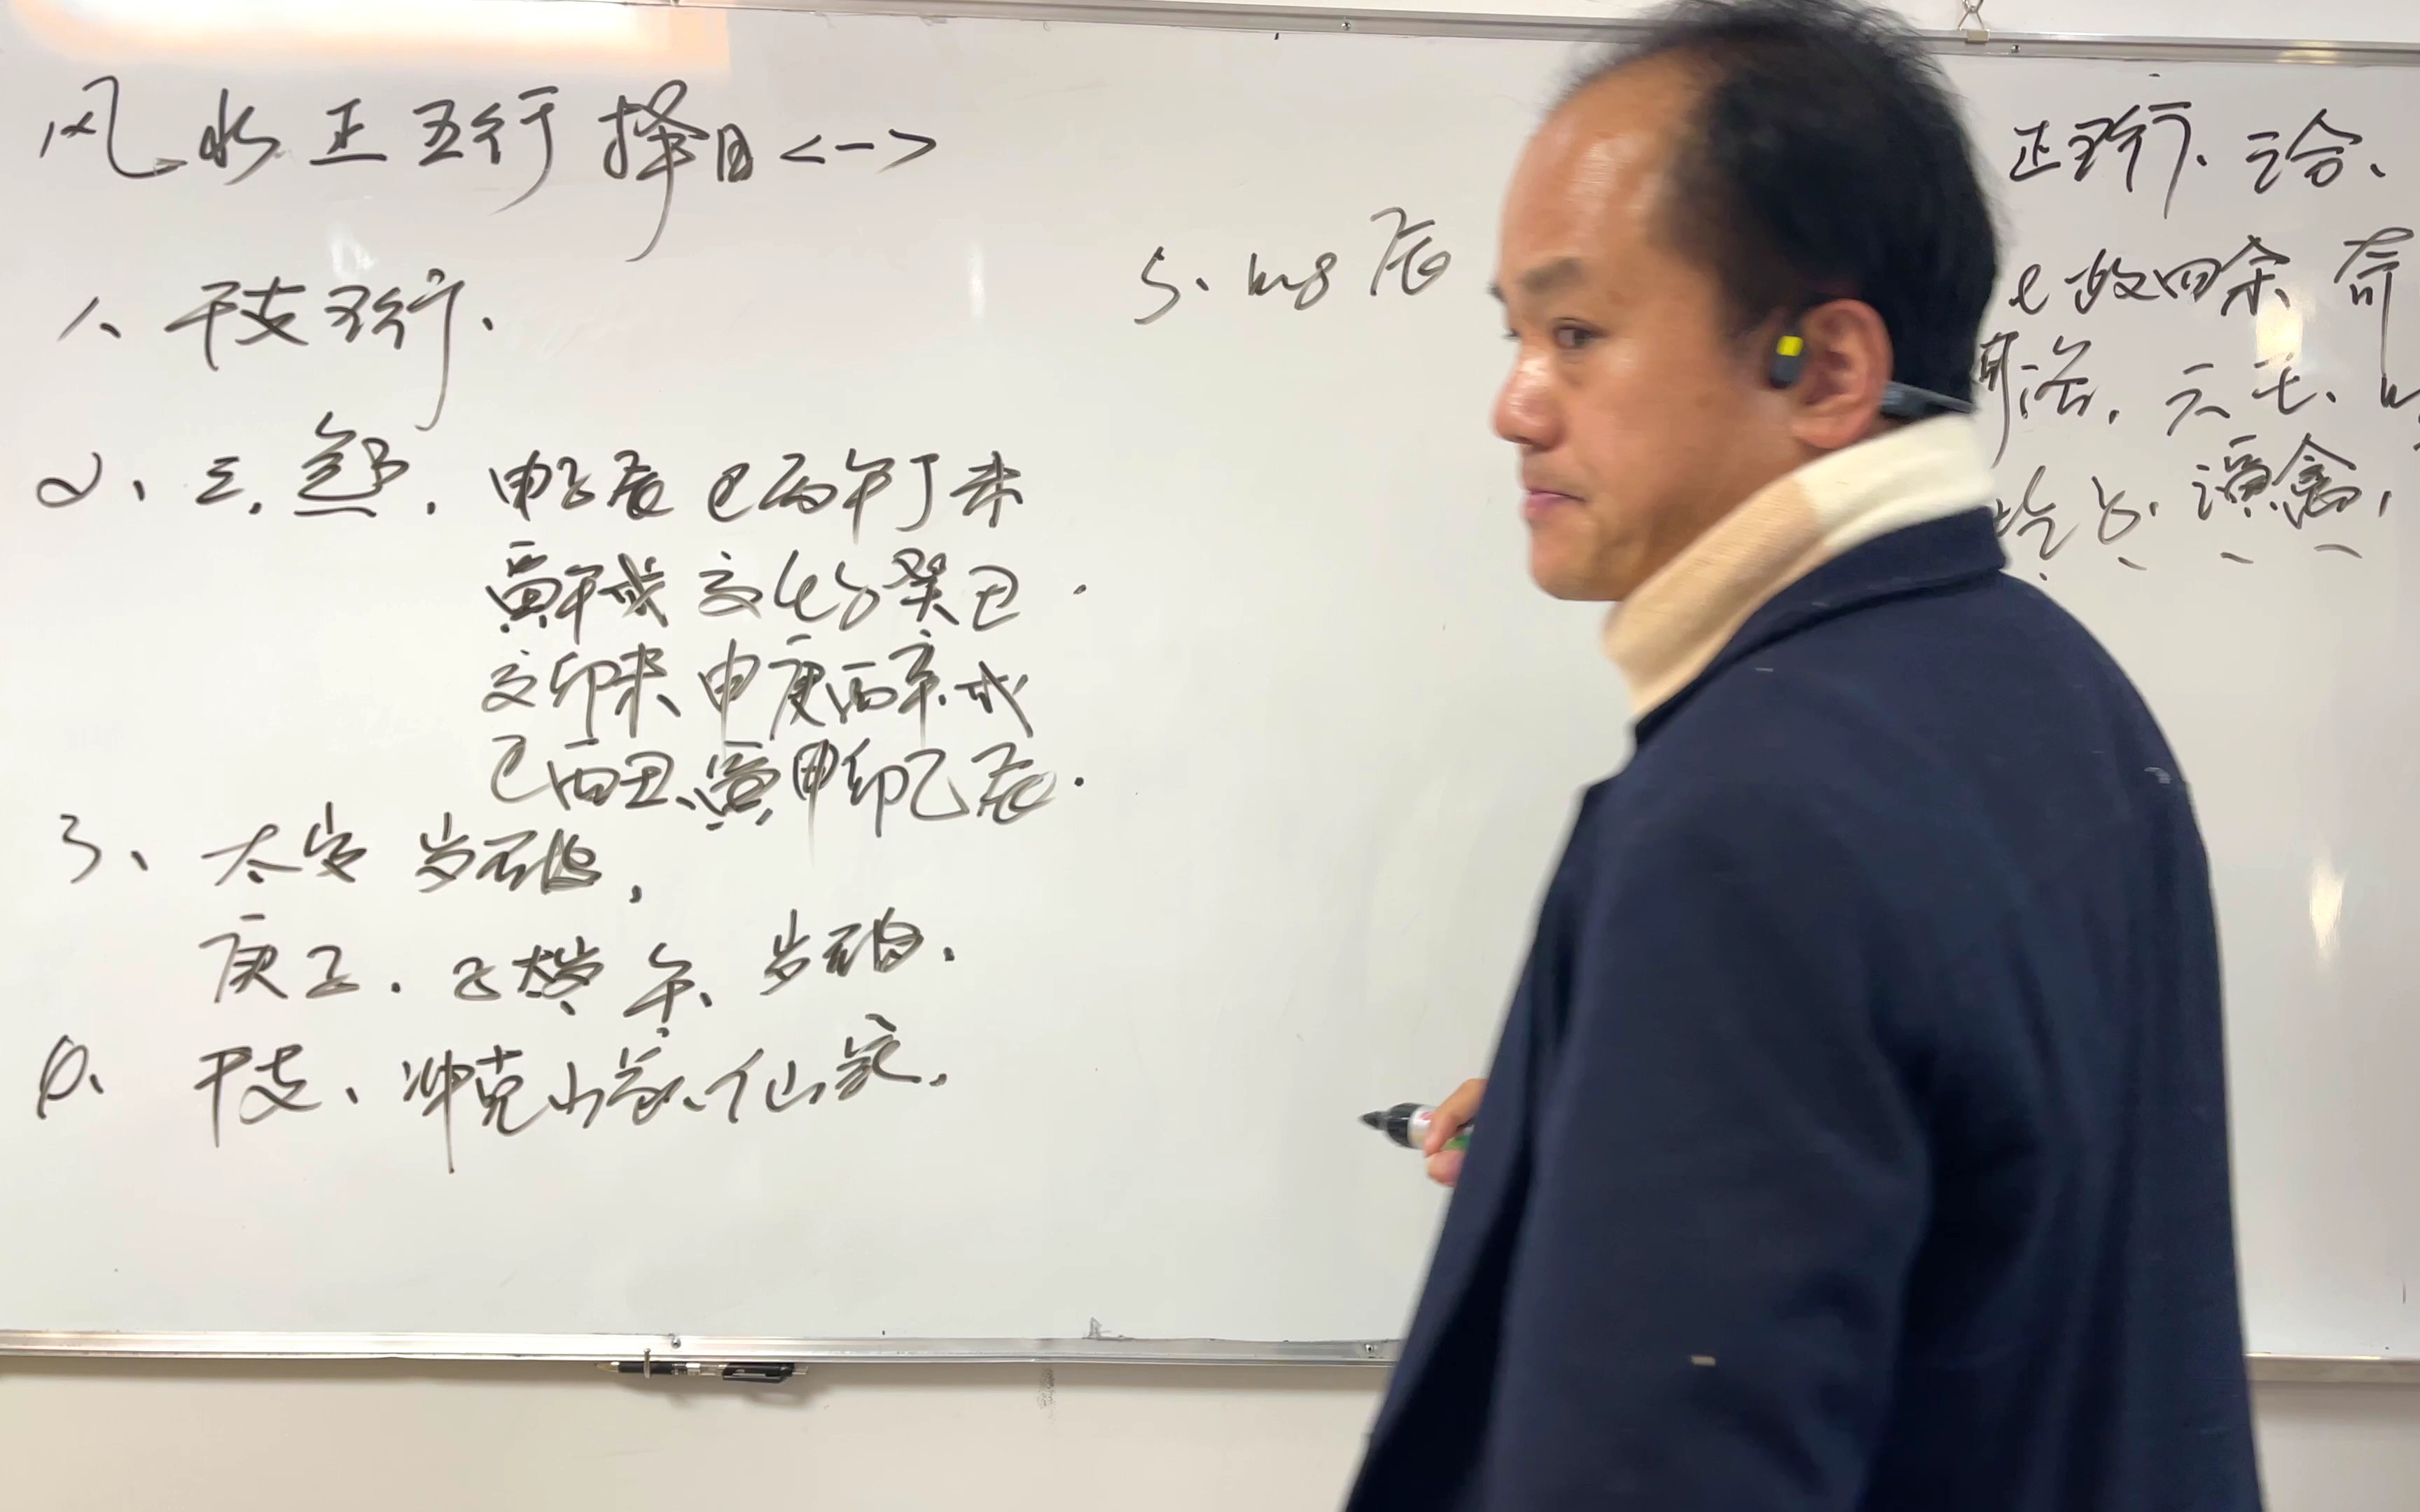 风水正五行择日<一>
1、干支五行.
2、三煞. 申子辰 巳丙午丁未
寅午戌 亥壬子癸丑.
亥卯未 申庚酉辛戌
巳酉丑 寅甲卯乙辰.
3、太岁 岁破,
庚子. 子太岁 午、岁破.
干支、冲克山家、仙家.
5. 辰
正五行. 三合、
政四余 奇
演禽,